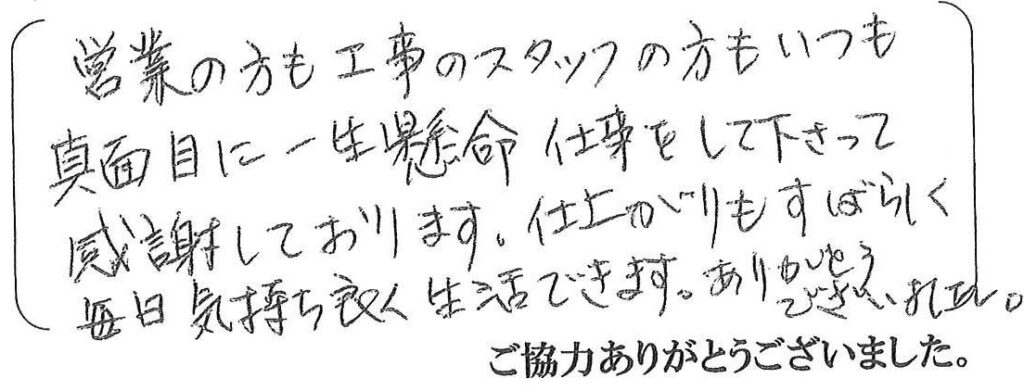 営業の方も工事のスタッフの方もいつも
真面目に一生懸命仕事をして下さって
感謝しております。仕上がりもすばらしく
毎日気持ち良く生活できます。ありがとうございました。
ご協力ありがとうございました。